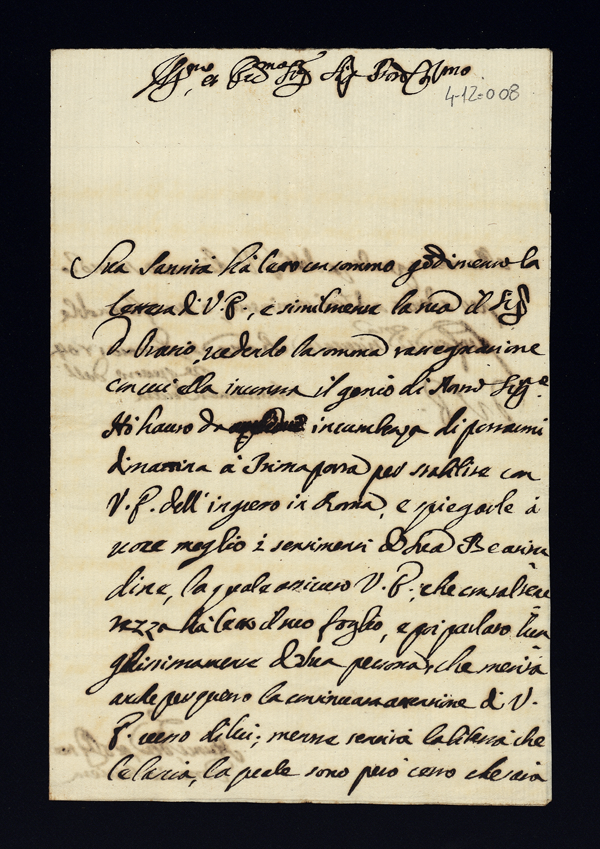 Ill.mo et Ecc.mo Sig.
4-12-008
Sua Santità hà letto con sommo godimento la
lettera di V. P., e similmente la sua il Sig
D. Orazio, vedendo la somma rassegnazione
con cui ella incontra il genio di
Hi hauto da incumbenza di portarmi
dimattina à Prima porta per stabilire con
V. P. dell'ingresso in Roma, e spiegarle à
voce meglio i sentimenti di Sua Beatitu
dine, la quale assicuro V. P., che con altre
rezza hà letto il suo foglio, e poi parlato lun
ghissimamente di sua persona, che merita
anche per questo la continuata attenzione di V.
P. verso di lui; mentre sentirà la libertà che
le lascia, la quale sono però certo che sarà